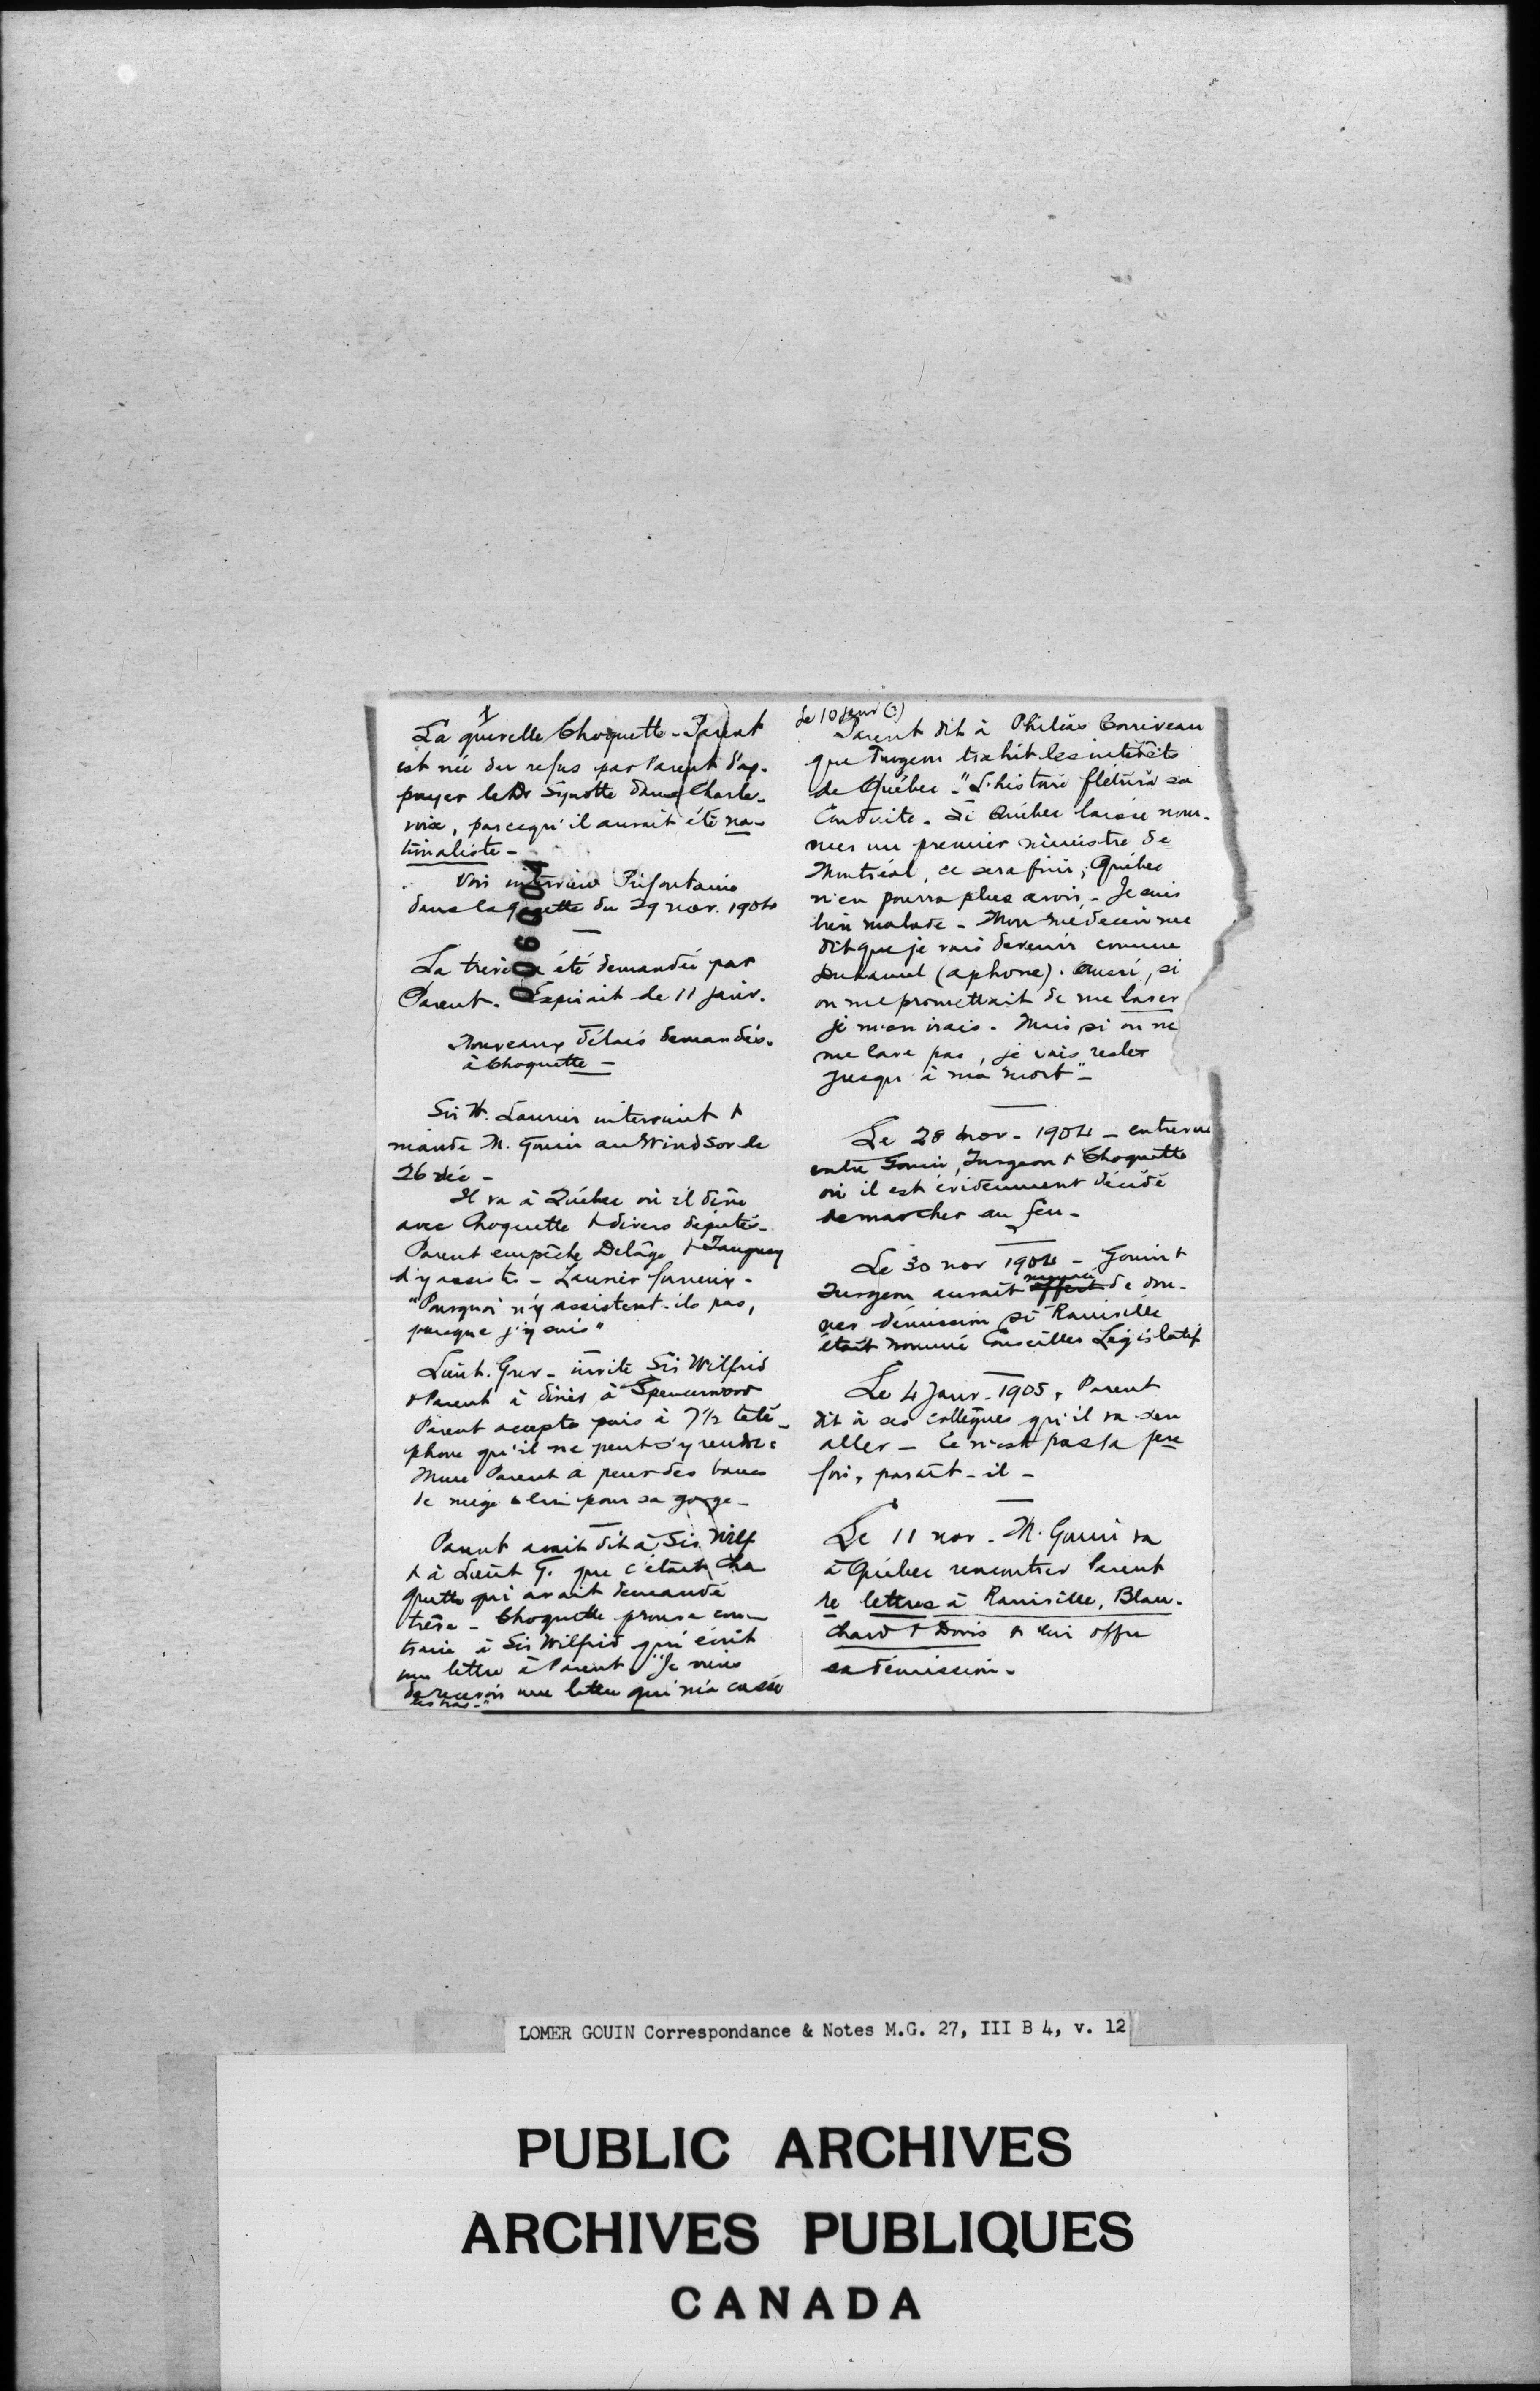 1
La querelle Choquette-Parent
est née du refus par Parent d'ap-
puyer le Dr Synotte dans Charle-
voix, parcequ'il aurait été na-
tionaliste -
Voir interview Préfontaine
dans la gazette du 29 nov. 1904
La trève a été demandée par
Parent. Expirait le 11 janv.
Nouveaux délais demandés
à Choquette -
Sir W. Laurier intervient &
mande M. Gouin au Windsor le
26 déc -
Il va à Québec où il dîne
avec Choquette & divers députés -
Parent empêche Delâge & Tanguay
d'y assister - Laurier furieux -
"Pourquoi n'y assistent-ils pas,
puisque j'y suis"
Lieut. Gouv - invite Sir Wilfrid
& Parent à dîner à Spencerwood
Parent accepte puis à 7½ télé-
phone qu'il ne peut s'y rendre:
Mme Parent a peur des bancs
de neige & lui pour sa gorge -
Parent avait dit à Sir Wilf
& à Lieut G. que c'était Cho
quette qui avait demandé
trève - Choquette prouve con-
traire à Sir Wilfrid qui écrit
une lettre à Parent. "Je viens
de recevoir une lettre qui m'a cassé
les bras -"
006004
Le 10 janv (?)
Parent dit à Philéas Corriveau
que Turgeon trahit les intérêts
de Québec - "L'histoire flétrira sa
conduite. Si Québec laisse nom-
mer un premier ministre de
Montréal, ce sera fini; Québec
n'en pourra plus avoir. - Je suis
bien malade - Mon médecin me
dit que je vais devenir comme
Duhamel (aphone). Aussi, si
on me promettait de me laver
je m'en irais. Mais si on ne
me lave pas, je vais rester
jusqu'à ma mort" -
Le 28 nov - 1904 - entrevue
entre Gouin, Turgeon & Choquette
où il est évidemment décidé
de marcher au feu -
Le 30 nov 1904 - Gouin &
Turgeon aurait menacé de don-
ner démission si Rainville
était nommé Conseiller Législatif
Le 4 Janv - 1905, Parent
dit à ses collègues qu'il va s'en
aller - Ce n'est pas la 1ere
fois, paraît-il -
Le 11 nov - M. Gouin va
à Québec rencontrer Parent
re lettres à Rainville, Blan-
chard & Doris & lui offre
sa démission.
LOMER GOUIN Correspondance & Notes M.G. 27, III B 4, v. 12
PUBLIC ARCHIVES
ARCHIVES PUBLIQUES
CANADA